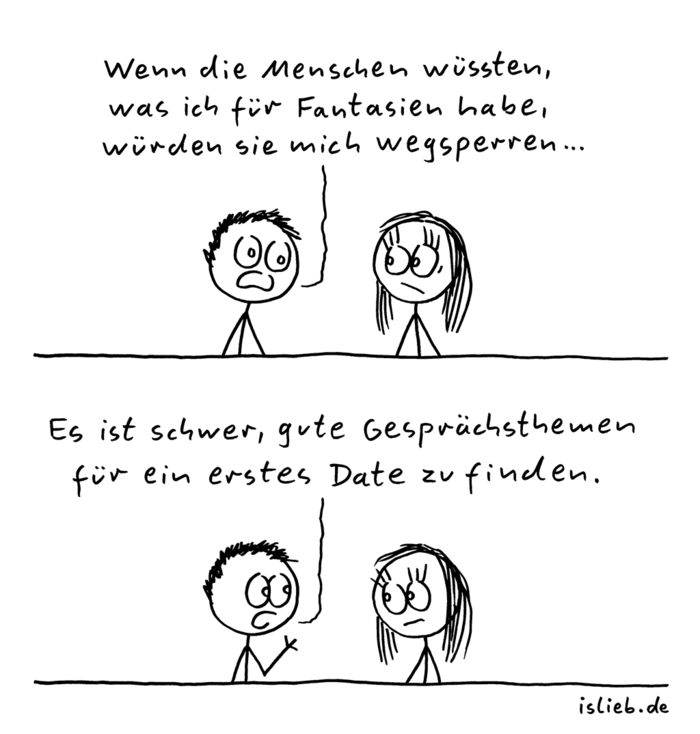 Wenn die Menschen wüssten,
was ich für Fantasien habe,
würden sie mich wegsperren...
Es ist schwer, gute Gesprächsthemen
für ein erstes Date zu finden.
islieb.de